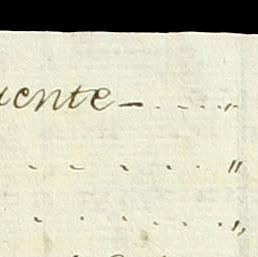 uente - . . . . "
. . . . . "
. . . . . . "